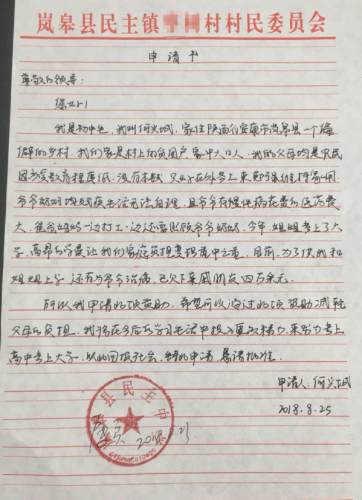 岚皋县民主镇村村民委员会
申请书
尊敬的领导：
您好！
我是初中生，我叫何兴城，家住陕西省安康市岚皋县一个偏
僻的乡村，我们家是村上的贫困户，家中六口人，我的父母均是农民
因为受教育程度低，没有本领，只好在外务工来勉强维持家用，
爷爷奶奶均残疾生活无法自理，且爷爷有慢性病在费医药费
大，爸爸妈妈一边打工一边还要照顾爷爷奶奶，今年，姐姐考上了大
学，高昂的学费让我们的家庭负担更加重之重，目前，为了供我和
姐姐上学，还有为爷爷治病，已欠下亲戚朋友四万余元。
所以我申请此项资助，希望可以通过此项资助减轻
父母的负担，我将在今后的学习生活中投入更多精力，来努力考上
高中考上大学，以此回报社会，特此申请，恳请批准。
申请人：何兴城
2018.8.25
岚皋县民主中
属实
2018.8.21